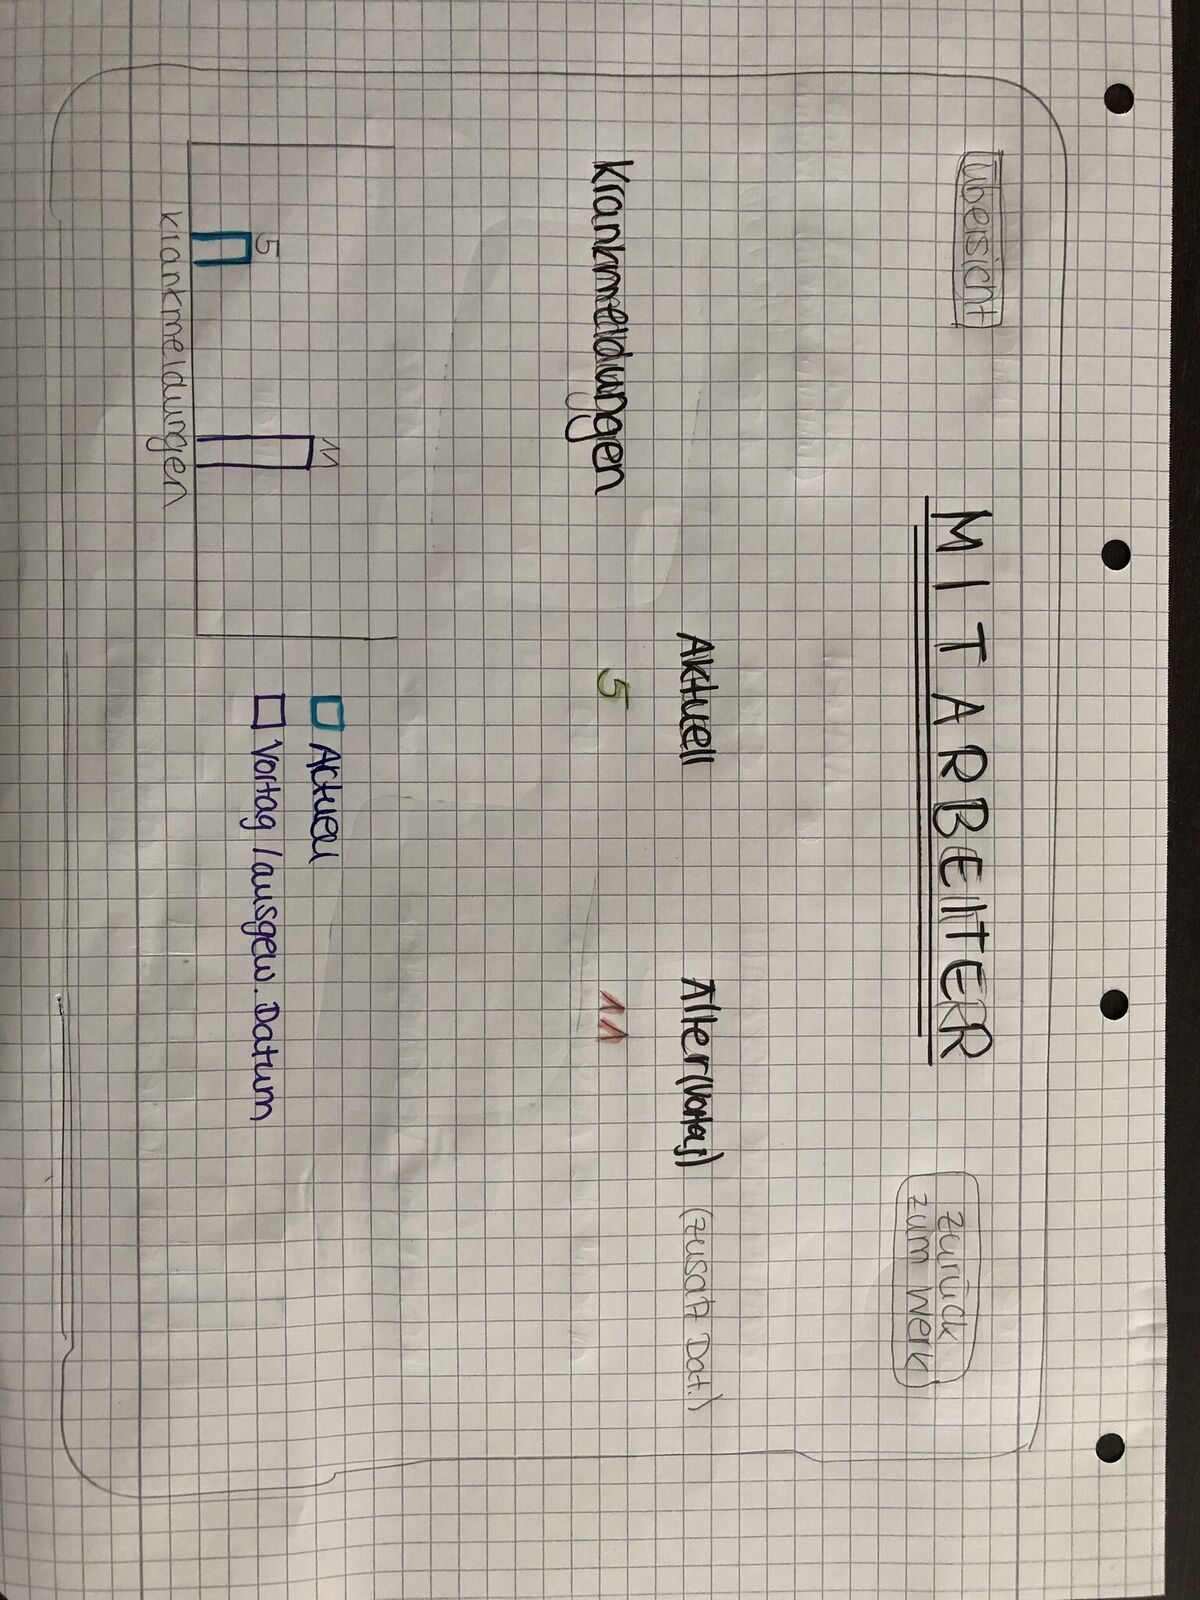 Übersicht
MITARBEITER
zurück
zum Werk
Aktuell
Älter (Vortag) (zusatz Dat.)
Krankmeldungen
5
11
11
5
Krankmeldungen
Aktuell
Vortag / ausgew. Datum